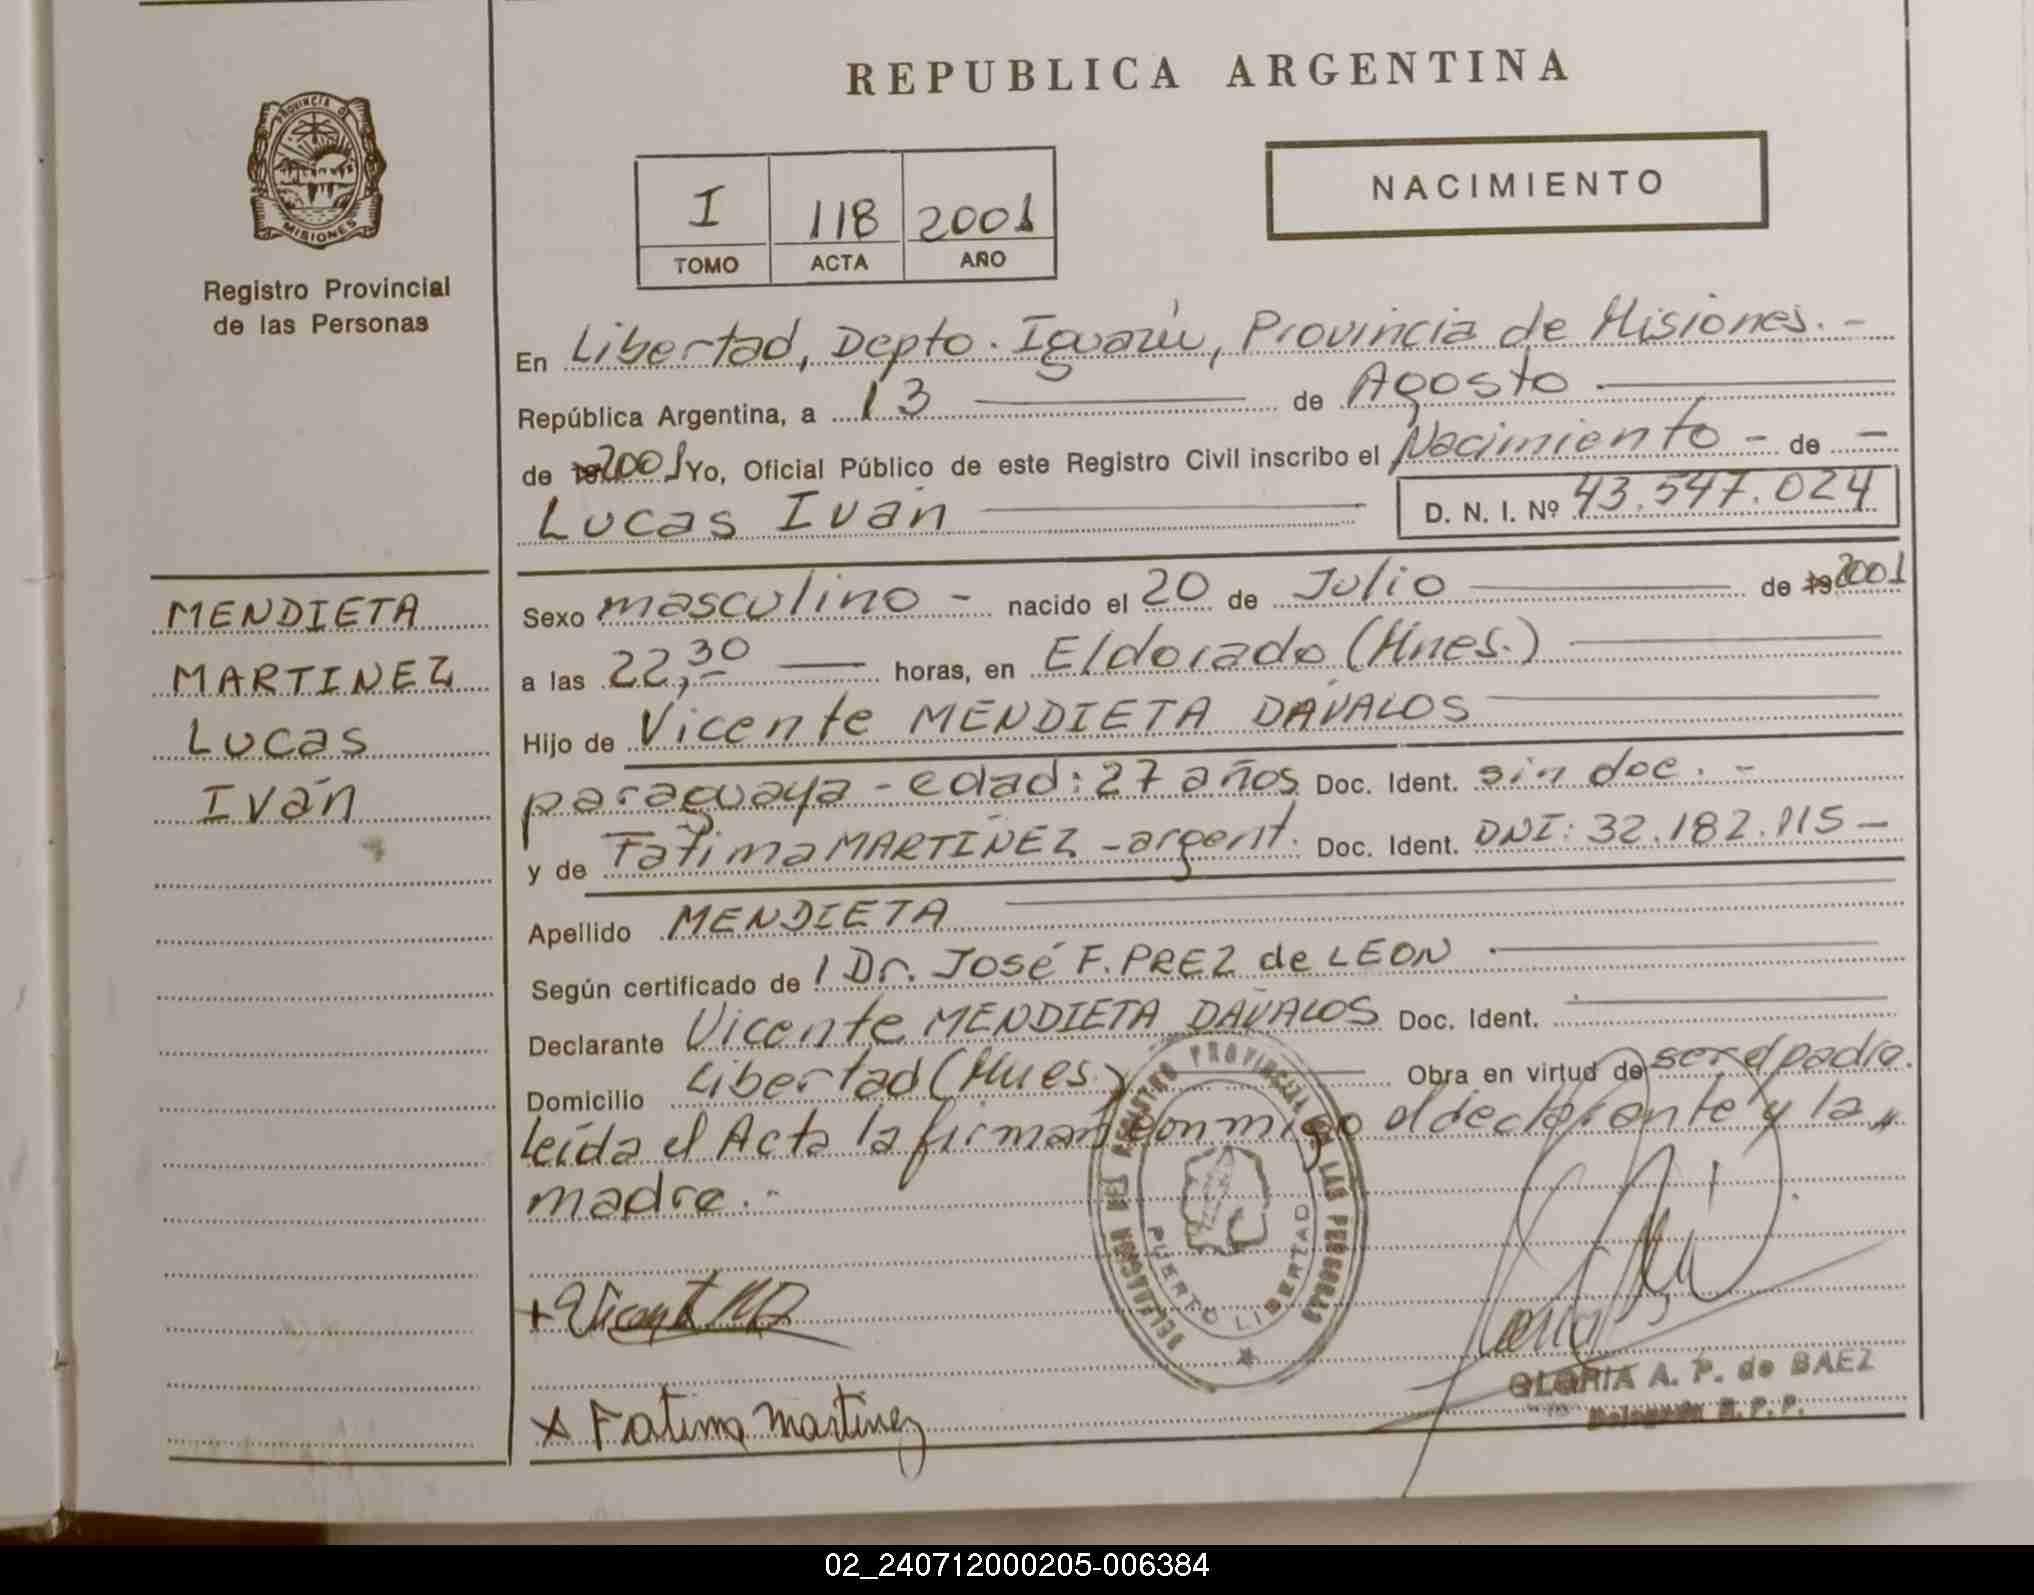 REPUBLICA ARGENTINA
PROVINCIA D
MISIONES
Registro Provincial
de las Personas
I 118 2001
TOMO ACTA AÑO
NACIMIENTO
En Libertad, Depto. Iguazú, Provincia de Misiones. -
República Argentina, a 13 de Agosto
de 19 2001 Yo, Oficial Público de este Registro Civil inscribo el Nacimiento - de -
Lucas Iván D. N. I. Nº 43.547.024
MENDIETA
MARTINEZ
Lucas
Iván
Sexo masculino - nacido el 20 de Julio de 19 2001
a las 22,30 horas, en Eldorado (Mnes.)
Hijo de Vicente MENDIETA DÁVALOS
paraguaya - edad: 27 años Doc. Ident. sin doc. -
y de Fátima MARTÍNEZ - argent. Doc. Ident. DNI: 32.182.115 -
Apellido MENDIETA
Según certificado de l Dr. José F. PREZ de LEON
Declarante Vicente MENDIETA DÁVALOS Doc. Ident.
Domicilio Libertad (Mnes.) Obra en virtud de ser el padre.
Leída el Acta la firman conmigo el declarante y la
madre. -
DELEGACION DEL REGISTRO PROVINCIAL DE LAS PERSONAS
PUERTO LIBERTAD
+ Vicent MD
x Fatima Martinez
GLORIA A. P. de BAEZ
02_240712000205-006384